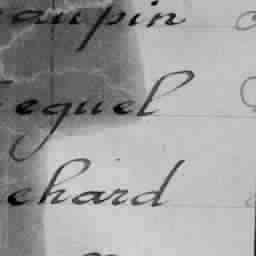 aupin
equel
chard